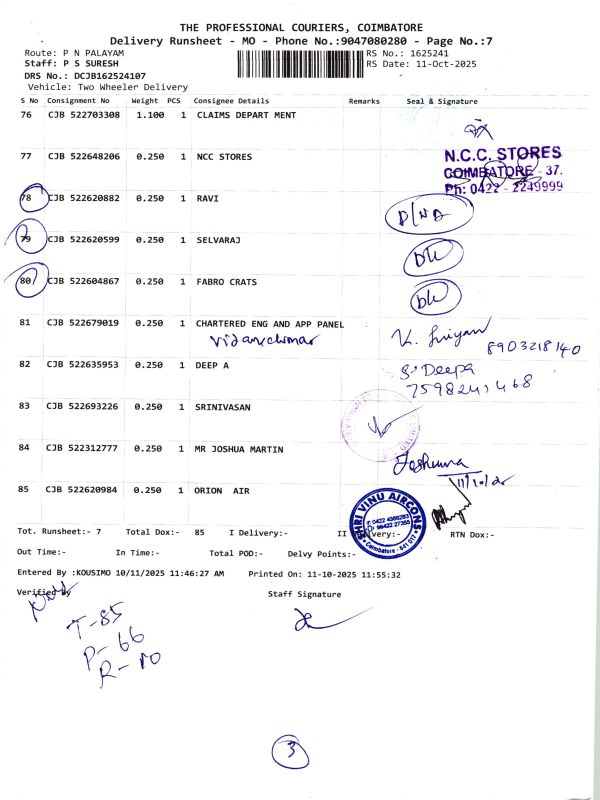 THE PROFESSIONAL COURIERS, COIMBATORE
Delivery Runsheet - MO - Phone No.:9047080280 - Page No.:7
Route: P N PALAYAM
RS No.: 1625241
Staff: P S SURESH
RS Date: 11-Oct-2025
DRS No.: DCJB162524107
Vehicle: Two Wheeler Delivery
S No Consignment No Weight PCS Consignee Details Remarks Seal & Signature
76 CJB 522703308 1.100 1 CLAIMS DEPART MENT
77 CJB 522648206 0.250 1 NCC STORES
N.C.C. STORES
COIMBATORE - 37.
Ph: 0422 - 2249999
78 CJB 522620882 0.250 1 RAVI
79 CJB 522620599 0.250 1 SELVARAJ
80 CJB 522604867 0.250 1 FABRO CRATS
81 CJB 522679019 0.250 1 CHARTERED ENG AND APP PANEL
8903218140
82 CJB 522635953 0.250 1 DEEP A
S. Deepa
7598241468
83 CJB 522693226 0.250 1 SRINIVASAN
84 CJB 522312777 0.250 1 MR JOSHUA MARTIN
85 CJB 522620984 0.250 1 ORION AIR
SHRI VINU AIRCONS
Coimbatore - 641 017
Tot. Runsheet:- 7 Total Dox:- 85 I Delivery:- II Delivery:- RTN Dox:-
Out Time:- In Time:- Total POD:- Delvy Points:-
Entered By :KOUSIMO 10/11/2025 11:46:27 AM Printed On: 11-10-2025 11:55:32
Verified By Staff Signature
T-85
P-66
R-10
3